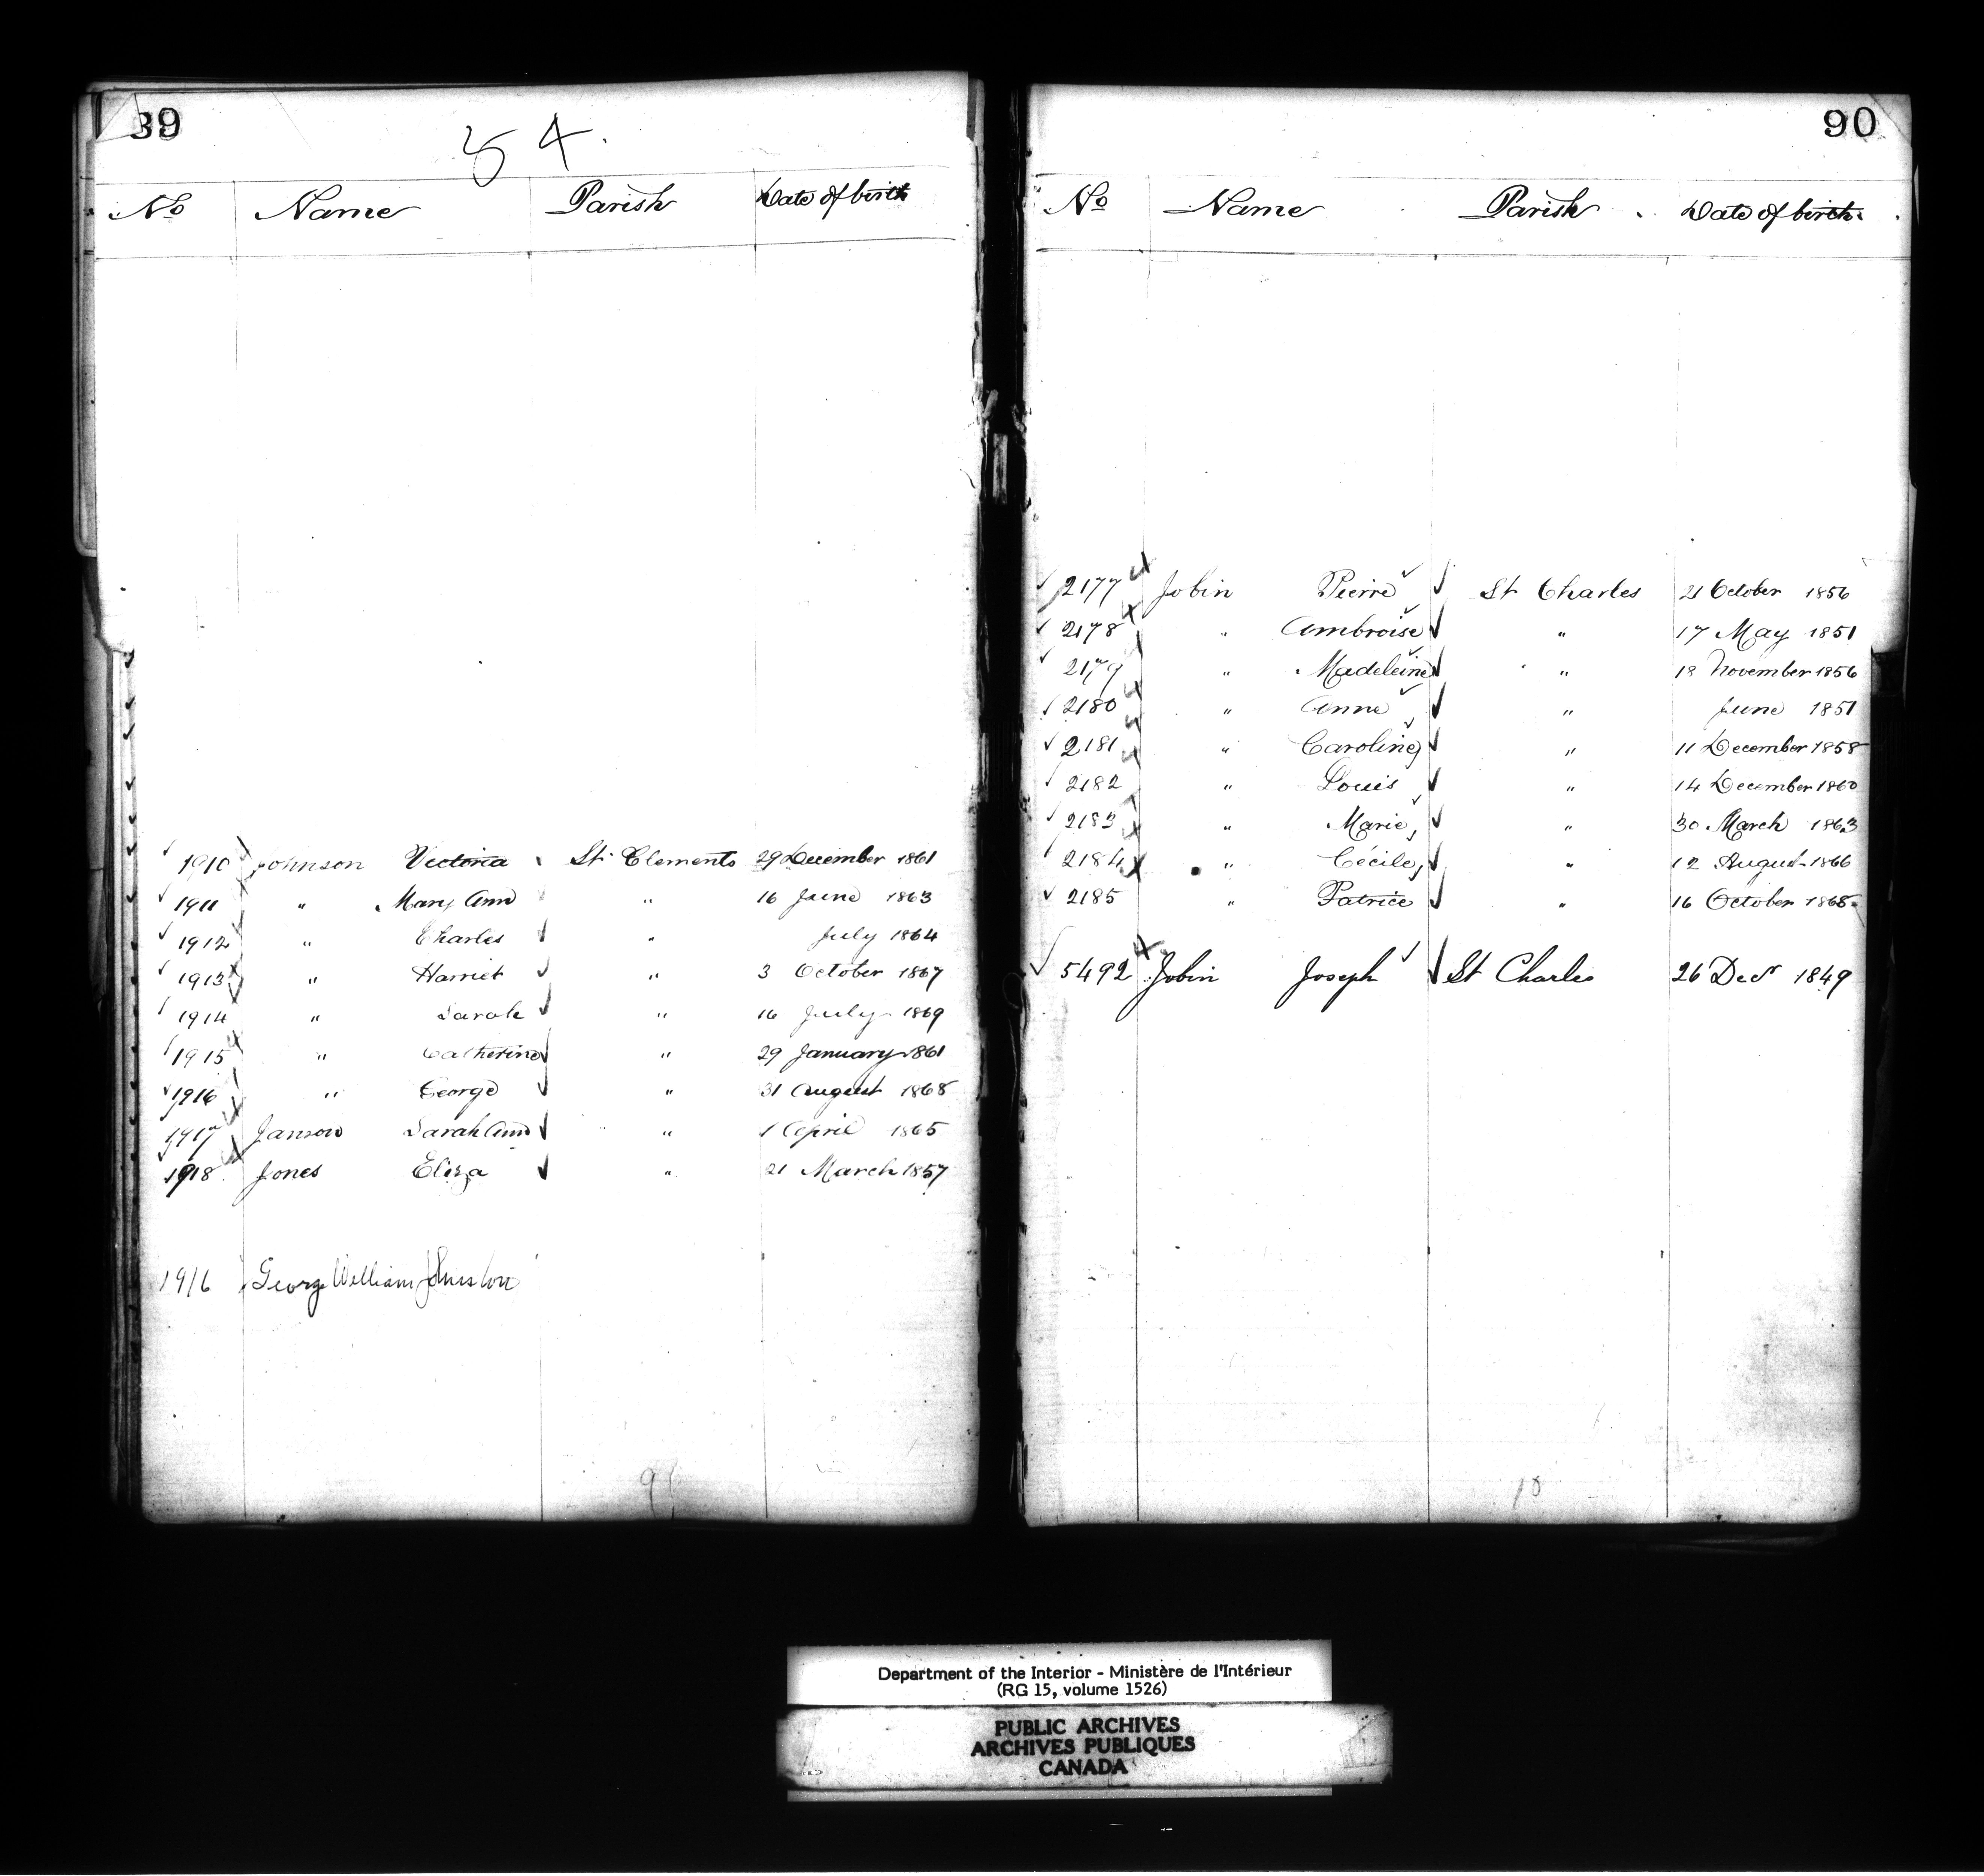 89
54.
No Name Parish Date of birth
1910 Johnson Victoria St Clements 29 December 1861
1911 " Mary Ann " 16 June 1863
1912 " Charles " July 1864
1913 " Harriet " 3 October 1867
1914 " Sarah " 16 July 1869
1915 " Catherine " 29 January 1861
1916 " George " 31 August 1868
1917 Sarah Ann " 1 April 1865
1918 Jones Eliza " 21 March 1857
1916 George William Johnston
90
No Name Parish Date of birth
2177 Jobin Pierre St Charles 21 October 1856
2178 " Ambroise " 17 May 1851
2179 " Madeleine " 18 November 1856
2180 " Anne " June 1851
2181 " Caroline " 11 December 1858
2182 " Louis " 14 December 1860
2183 " Marie, " 30 March 1863
2184 " Cécile, " 12 August 1866
2185 " Patrice " 16 October 1868
5492 Jobin Joseph St Charles 26 Decr 1849
10
Department of the Interior - Ministère de l'Intérieur
(RG 15, volume 1526)
PUBLIC ARCHIVES
ARCHIVES PUBLIQUES
CANADA